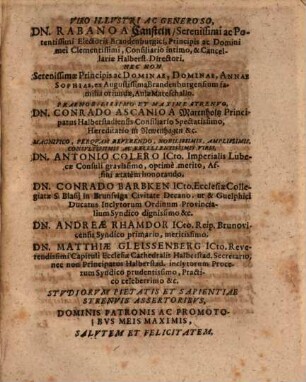 VIRO ILLUSTRI AC GENEROSO,
DN. RABANO à Canstein / Serenissimi ac Po-
tentissimi Electoris Brandenburgici, Principis ac Domini
mei Clementissimi, Consiliario intimo, & Cancel-
lariæ Halberst. Directori.
NEC NON
Serenissimæ Principis ac DOMINAE, DOMINAE, ANNAE
SOPHIAE, ex Augustissima Brandenburgensium fa-
milia oriundæ, Aulæ Mareschallo.
PRAENOBILISSIMO ET MAXIME STRENUO,
DN. CONRADO ASCANIO à Marenholtz Princi-
patus Halberstadiensis Consiliario Spectatissimo,
Hereditario in &c.
MAGNIFICO, PERQUAM REVERENDO, NOBILISSIMIS, AMPLISSIMIS,
CONSULTISSIMIS AC EXCELLENTISSIMIS VIRIS,
DN. ANTONIO COLERO ICto. Imperialis Lube-
cæ Consuli gravissimo, optimè merito, Af-
fini ætatem honorando.
DN. CONRADO BARBKEN ICto. Ecclesiæ Colle-
giatæ S. Blasij in Brunsviga Civitate Decano, ut & Guelphici
Ducatus Inclytorum Ordinum Provincia-
lium Syndico dignissimo &c.
DN. ANDREÆ RHAMDOR ICto. Reip. Brunovi-
censis Syndico primario, meritissimo.
DN. MATTHIÆ GLEISSENBERG ICto. Reve-
rendissimi Capituli Ecclesiæ Cathedralis Halberstad. Secretario,
nec non Principatus Halberstad. inclytorum Proce-
rum Syndico prudentissimo, Practi-
co celeberrimo &c.
STUDIORUM PIETATIS ET SAPIENTIAE
STRENUIS ASSERTORIBUS,
DOMINIS PATRONIS AC PROMOTO-
RIBUS MEIS MAXIMIS,
SALUTEM ET FELICITATEM.